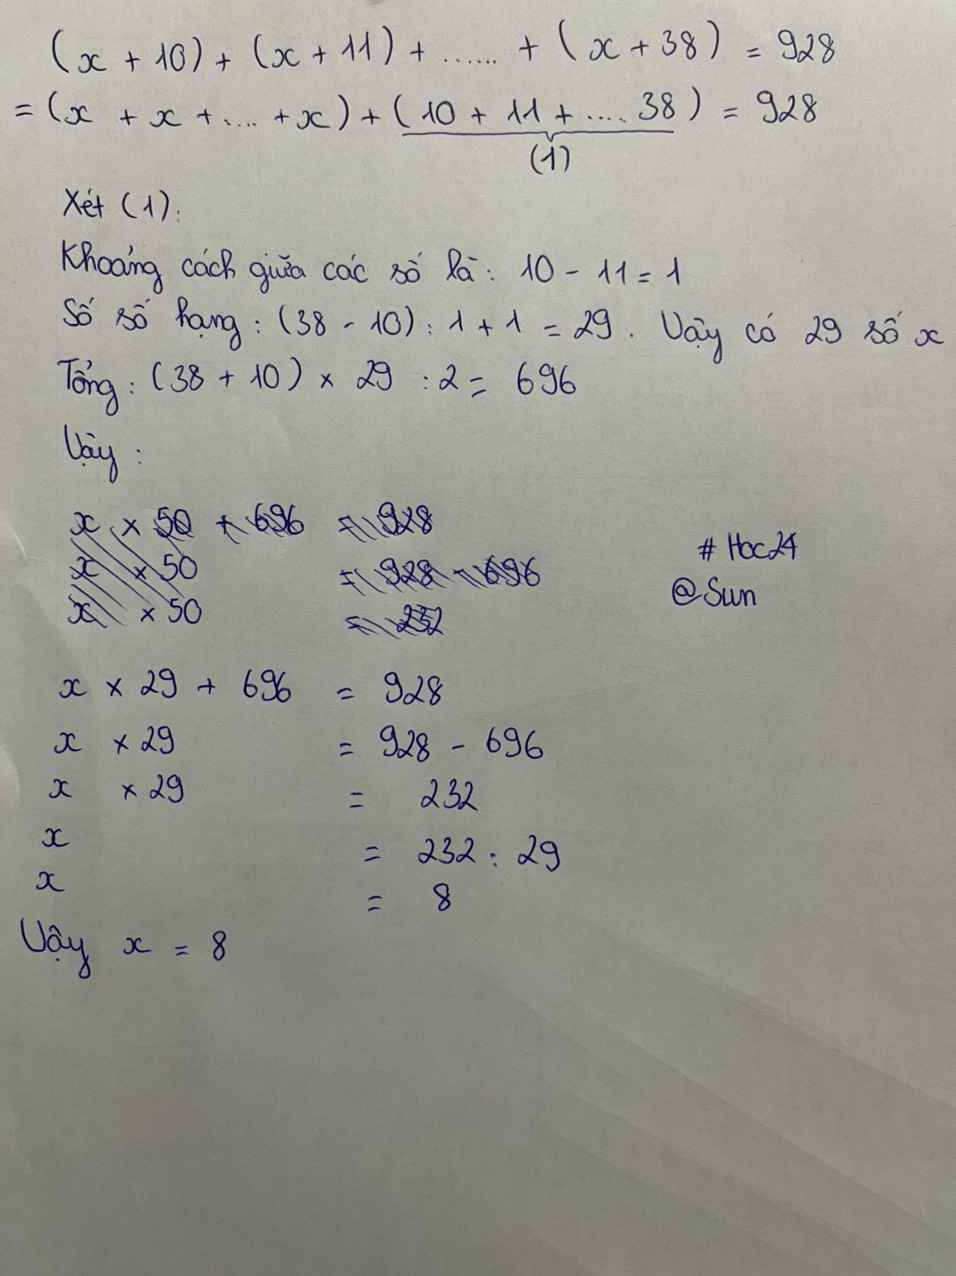 (x + 10) + (x + 11) + ...... + (x + 38) = 928
= (x + x + .... + x) + (10 + 11 + .... 38) = 928
(1)
Xét (1):
Khoảng cách giữa các số là: 10 - 11 = 1
Số số hạng: (38 - 10) : 1 + 1 = 29. Vậy có 29 số x
Tổng: (38 + 10) × 29 : 2 = 696
Vậy:
x × 50 + 696 = 928
x × 50 = 928 - 696
x × 50 = 232
# Hoc24
@Sun
x × 29 + 696 = 928
x × 29 = 928 - 696
x × 29 = 232
x = 232 : 29
x = 8
Vậy x = 8